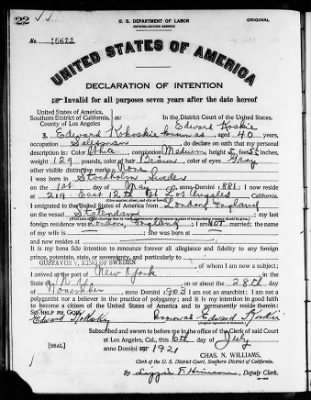 22
U. S. DEPARTMENT OF LABOR
NATURALIZATION SERVICE
ORIGINAL
No. 10622
UNITED STATES OF AMERICA
DECLARATION OF INTENTION
Invalid for all purposes seven years after the date hereof
United States of America,
Southern District of California,
County of Los Angeles
ss:
In the District Court of the United States.
Edward Koskie
I, Edward Koskie known as, aged 40 years,
occupation Salesman, do declare on oath that my personal
description is: Color White, complexion Medium, height 5 feet inches,
weight 129 pounds, color of hair Brown, color of eyes Gray
other visible distinctive marks None
I was born in Stockholm Sweden
on the 1st day of May, anno Domini 1881; I now reside
at 219 East 12th St Los Angeles, California.
I emigrated to the United States of America from London England
on the vessel Statendam; my last
foreign residence was London, England; I am not married; the name
of my wife is; she was born at
and now resides at
It is my bona fide intention to renounce forever all allegiance and fidelity to any foreign
prince, potentate, state, or sovereignty, and particularly to
GUSTAVUS V, KING OF SWEDEN, of whom I am now a subject;
I arrived at the port of New York, in the
State of N. Y., on or about the 28th day
of November, anno Domini 1903; I am not an anarchist; I am not a
polygamist nor a believer in the practice of polygamy; and it is my intention in good faith
to become a citizen of the United States of America and to permanently reside therein:
SO HELP ME GOD.
Edward Koskie
Subscribed and sworn to before me in the office of the Clerk of said Court
at Los Angeles, Cal., this day of July
[SEAL]
anno Domini 1921
CHAS. N. WILLIAMS,
Clerk of the U. S. District Court, Southern District of California.
By, Deputy Clerk.